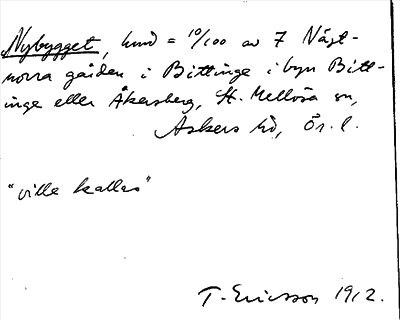 Nybygget, hmd = 10/100 av 7 Näst-
norra gården i Bittinge i byn Bitt-
inge eller Åkersberg, St. Mellösa sn,
Askers hd, Ör. l.
"ville kallas"
T. Ericsson 1912.